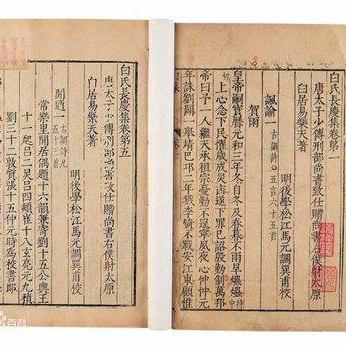 白氏長慶集卷第一
唐太子少傅刑部尚書致仕贈尚書右僕射太原
白居易樂天著
明後學松江馬元調巽甫校
諷諭一 古調詩五言六十五首
賀雨
皇帝嗣寶曆元和三年冬自冬及春暮不雨旱爞爞
上心念下民懼歲成災凶遂下罪己詔殷勤制萬邦
帝曰予一人繼天承祖宗憂勤不遑寧夙夜心忡忡元
年誅劉闢一舉靖巴卭二年戮李錡不戰安江東顧惟
白氏長慶集卷第五
唐太子少傅刑部尚書致仕贈尚書右僕射太原
白居易樂天著
明後學松江馬元調巽甫校
閒適一 古調詩凡五十三首
常樂里閒居偶題十六韻兼寄劉十五公輿王
十一起呂二炅呂四熲崔十八玄亮元九稹
劉三十二敦質張十五仲元時為校書郎
百科